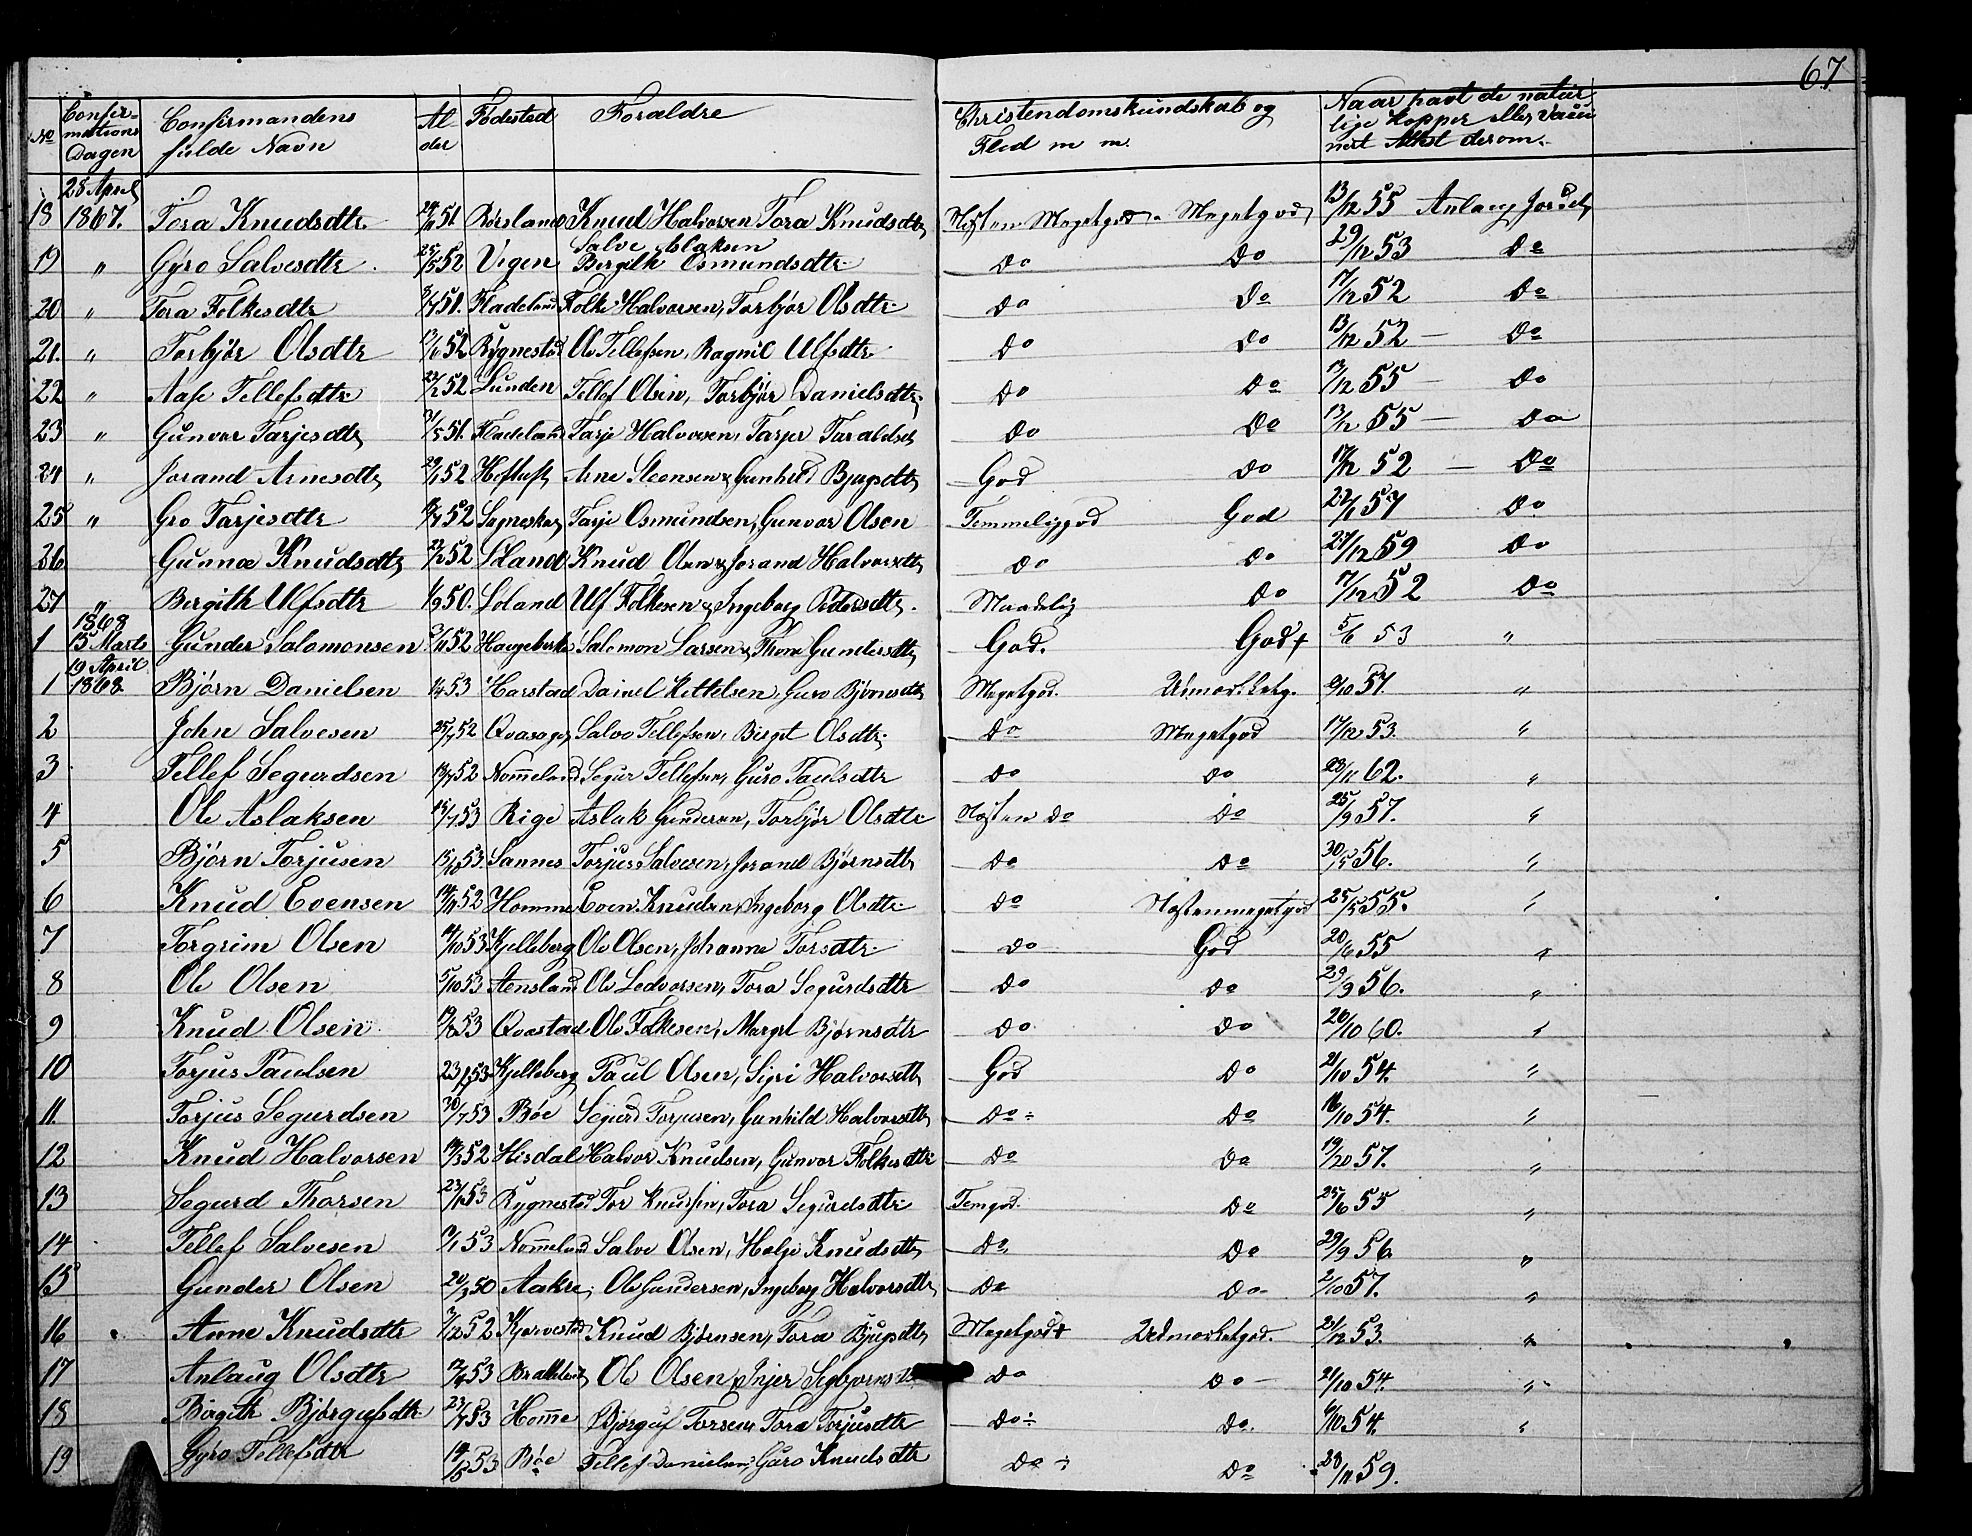 67
No Confirmations Dagen Confirmandens fulde Navn Alder Fødested Forældre Christendomskundskab og Flid m m. Naar havt de naturlige Kopper eller Attest derom.
28 April
18 1867. Tora Knudsdtr. 51. Knud Halvorsen Tora Knudsdtr Megetgod Megetgod 13/12 55
19 " Gyro Salvesdtr. 25/5 52 Vigen Salve Aslaksen Bergith Osmundsdtr. Do Do 29/12 53 Do
20 " Tora Folkesdtr 51. Fladeland Folke Halvorsen, Torbjør Olsdtr. Do Do 17/12 52 Do
21. " Torbjør Olsdtr 52 Rygnestad Ole Tellefsen, Ragnil Ulfsdtr. Do Do 13/12 52 — Do
22 " Aase Tellefsdtr. 52 Lunden Tellef Olsen, Torbjør Danielsdtr. Do Do 13/12 55 — Do
23 " Gunvor Tarjesdtr 31/5 51. Fladeland Tarje Halvorsen, Do Do 13/12 55 — Do
24 " Jorand Arnesdtr 29/1 52 Arne Steensen & Gunhild Bjugsdtr God Do 17/12 52 — Do
25 " Gro Tarjesdtr 52 Tarje Osmundsen, Gunvor Olsen Temmeliggod God 57 Do
26 Gunnø Knudsdtr 52 Knud Olsen & Jorand Halvorsdtr Do Do 27/12 59 Do
27 " Bergith Ulfsdtr 50. Loland Ulf Folkesen & Ingeborg Pedersdtr. Maadelig Do 17/12 52 Do
1868
1 15 Marts Gunder Salomonsen 52 Salomon Larsen & Thone Gundersdtr God. God + 5/6 53 "
19 April
1 1868 Bjørn Danielsen 53 Harstad Daniel Kittelsen, Guro Bjørnsdtr Megetgod. 57. "
2 John Salvesen 52 Salve Tellefsen, Birgit Olsdtr. Do Megetgod 17/12 53. "
3 Tellef Segurdsen 52 Nomeland Segur Tellefsen, Guro Paulsdtr Do Do 62. "
4 Ole Aslaksen 15/7 53 Rige Aslak Gundersen, Torbjør Olsdtr. Næsten Do Do 25/9 57. "
5 Bjørn Torjusen 53 Sannes Torjus Salvesen, Jorand Bjørnsdtr Do Do 30/5 56. "
6 Knud Evensen 14/11 52 Homme Even Knudsen, Ingeborg Olsdtr. Do Næstenmegetgod 25/5 55. "
7 Torgrim Olsen 14/10 53 Kjelleberg Ole Olsen, Johanne Torsdtr. Do God 20/6 55 "
8 Ole Olsen 5/10 53 Ole Ledvorsen, Tora Segurdsdtr Do Do 29/9 56. "
9 Knud Olsen 53 Qvastad Ole Folkesen, Marget Bjørnsdtr Do Do 20/10 60. "
10 Torjus Paulsen 53 Kjelleberg Paul Olsen, Sigri Halvorsdtr God Do 21/10 54. "
11. Torjus Segurdsen 30/7 53 Bøe Segurd Torjusen, Gunhild Halvorsdtr Do Do 16/10 54. "
12 Knud Halvorsen 52 Hisdal Halvor Knudsen, Gunvor Folkesdtr. Do Do 19/20 57. "
13 Segurd Thorsen 53 Rygnestad Tor Knudsen, Tora Segurdsdtr. Temgod. Do 25/6 55 "
14 Tellef Salvesen 53 Nomeland Salve Olsen, Helje Knudsdtr Do Do 29/9 56 "
15 Gunder Olsen 50 Aakre, Ole Gundersen, Ingeborg Halvorsdtr Do Do 2/10 57. "
16 Anne Knudsdtr 7/12 52 Knud Bjørnsen, Tora Bjugsdtr Megetgod + Udmærketgod. 21/12 53. "
17 Anlaug Olsdtr 53 Ole Olsen, Do Do 21/10 54. "
18 Birgith Bjørgufsdtr 23/7 53 Homme Bjørguf Torsen, Tora Torjusdtr Do Do. 54. "
19 Gyro Tellefsdtr 53 Bøe Tellef Danielsen, Guro Knudsdtr Do Do 59.